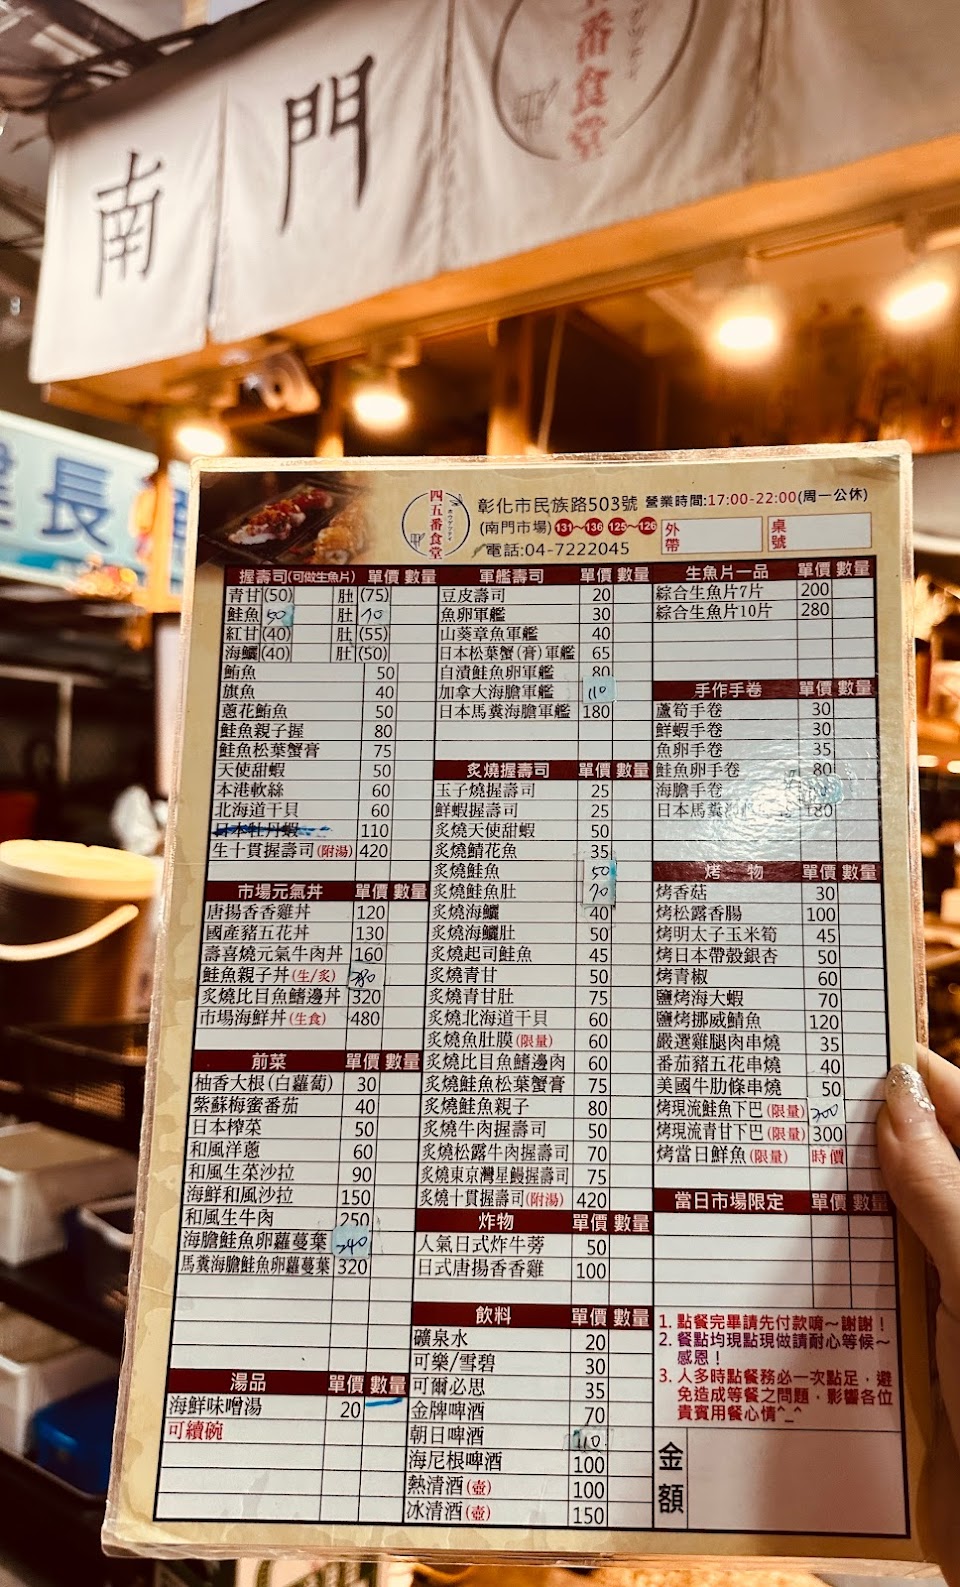 南門
番食堂
長
四五番食堂
彰化市民族路503號 營業時間:17:00-22:00(周一公休)
(南門市場) 131~136 125~126
電話:04-7222045
外帶
桌號
握壽司(可做生魚片) 單價 數量
青甘(50) 肚(75)
鮭魚 50 肚 70
紅甘(40) 肚(55)
海鱺(40) 肚(50)
鮪魚 50
旗魚 40
蔥花鮪魚 50
鮭魚親子握 80
鮭魚松葉蟹膏 75
天使甜蝦 50
本港軟絲 60
北海道干貝 60
日本牡丹蝦 110
生十貫握壽司(附湯) 420
市場元氣丼 單價 數量
唐揚香香雞丼 120
國產豬五花丼 130
壽喜燒元氣牛肉丼 160
鮭魚親子丼(生/炙) 280
炙燒比目魚鰭邊丼 320
市場海鮮丼(生食) 480
前菜 單價 數量
柚香大根(白蘿蔔) 30
紫蘇梅蜜番茄 40
日本榨菜 50
和風洋蔥 60
和風生菜沙拉 90
海鮮和風沙拉 150
和風生牛肉 250
海膽鮭魚卵蘿蔓葉 240
馬糞海膽鮭魚卵蘿蔓葉 320
湯品 單價 數量
海鮮味噌湯 20
可續碗
軍艦壽司 單價 數量
豆皮壽司 20
魚卵軍艦 30
山葵章魚軍艦 40
日本松葉蟹(膏)軍艦 65
自漬鮭魚卵軍艦 80
加拿大海膽軍艦 110
日本馬糞海膽軍艦 180
炙燒握壽司 單價 數量
玉子燒握壽司 25
鮮蝦握壽司 25
炙燒天使甜蝦 50
炙燒鯖花魚 35
炙燒鮭魚 50
炙燒鮭魚肚 70
炙燒海鱺 40
炙燒海鱺肚 50
炙燒起司鮭魚 45
炙燒青甘 50
炙燒青甘肚 75
炙燒北海道干貝 60
炙燒魚肚膜(限量) 60
炙燒比目魚鰭邊肉 60
炙燒鮭魚松葉蟹膏 75
炙燒鮭魚親子 80
炙燒牛肉握壽司 50
炙燒松露牛肉握壽司 70
炙燒東京灣星鰻握壽司 75
炙燒十貫握壽司(附湯) 420
炸物 單價 數量
人氣日式炸牛蒡 50
日式唐揚香香雞 100
飲料 單價 數量
礦泉水 20
可樂/雪碧 30
可爾必思 35
金牌啤酒 70
朝日啤酒 110
海尼根啤酒 100
熱清酒(壺) 100
冰清酒(壺) 150
生魚片一品 單價 數量
綜合生魚片7片 200
綜合生魚片10片 280
手作手卷 單價 數量
蘆筍手卷 30
鮮蝦手卷 30
魚卵手卷 35
鮭魚卵手卷 80
海膽手卷
日本馬糞 180
烤物 單價 數量
烤香菇 30
烤松露香腸 100
烤明太子玉米筍 45
烤日本帶殼銀杏 50
烤青椒 60
鹽烤海大蝦 70
鹽烤挪威鯖魚 120
嚴選雞腿肉串燒 35
番茄豬五花串燒 40
美國牛肋條串燒 50
烤現流鮭魚下巴(限量) 200
烤現流青甘下巴(限量) 300
烤當日鮮魚(限量) 時價
當日市場限定 單價 數量
1. 點餐完畢請先付款唷~謝謝!
2. 餐點均現點現做請耐心等候~
感恩!
3. 人多時點餐務必一次點足,避
免造成等餐之問題,影響各位
貴賓用餐心情^_^
金額